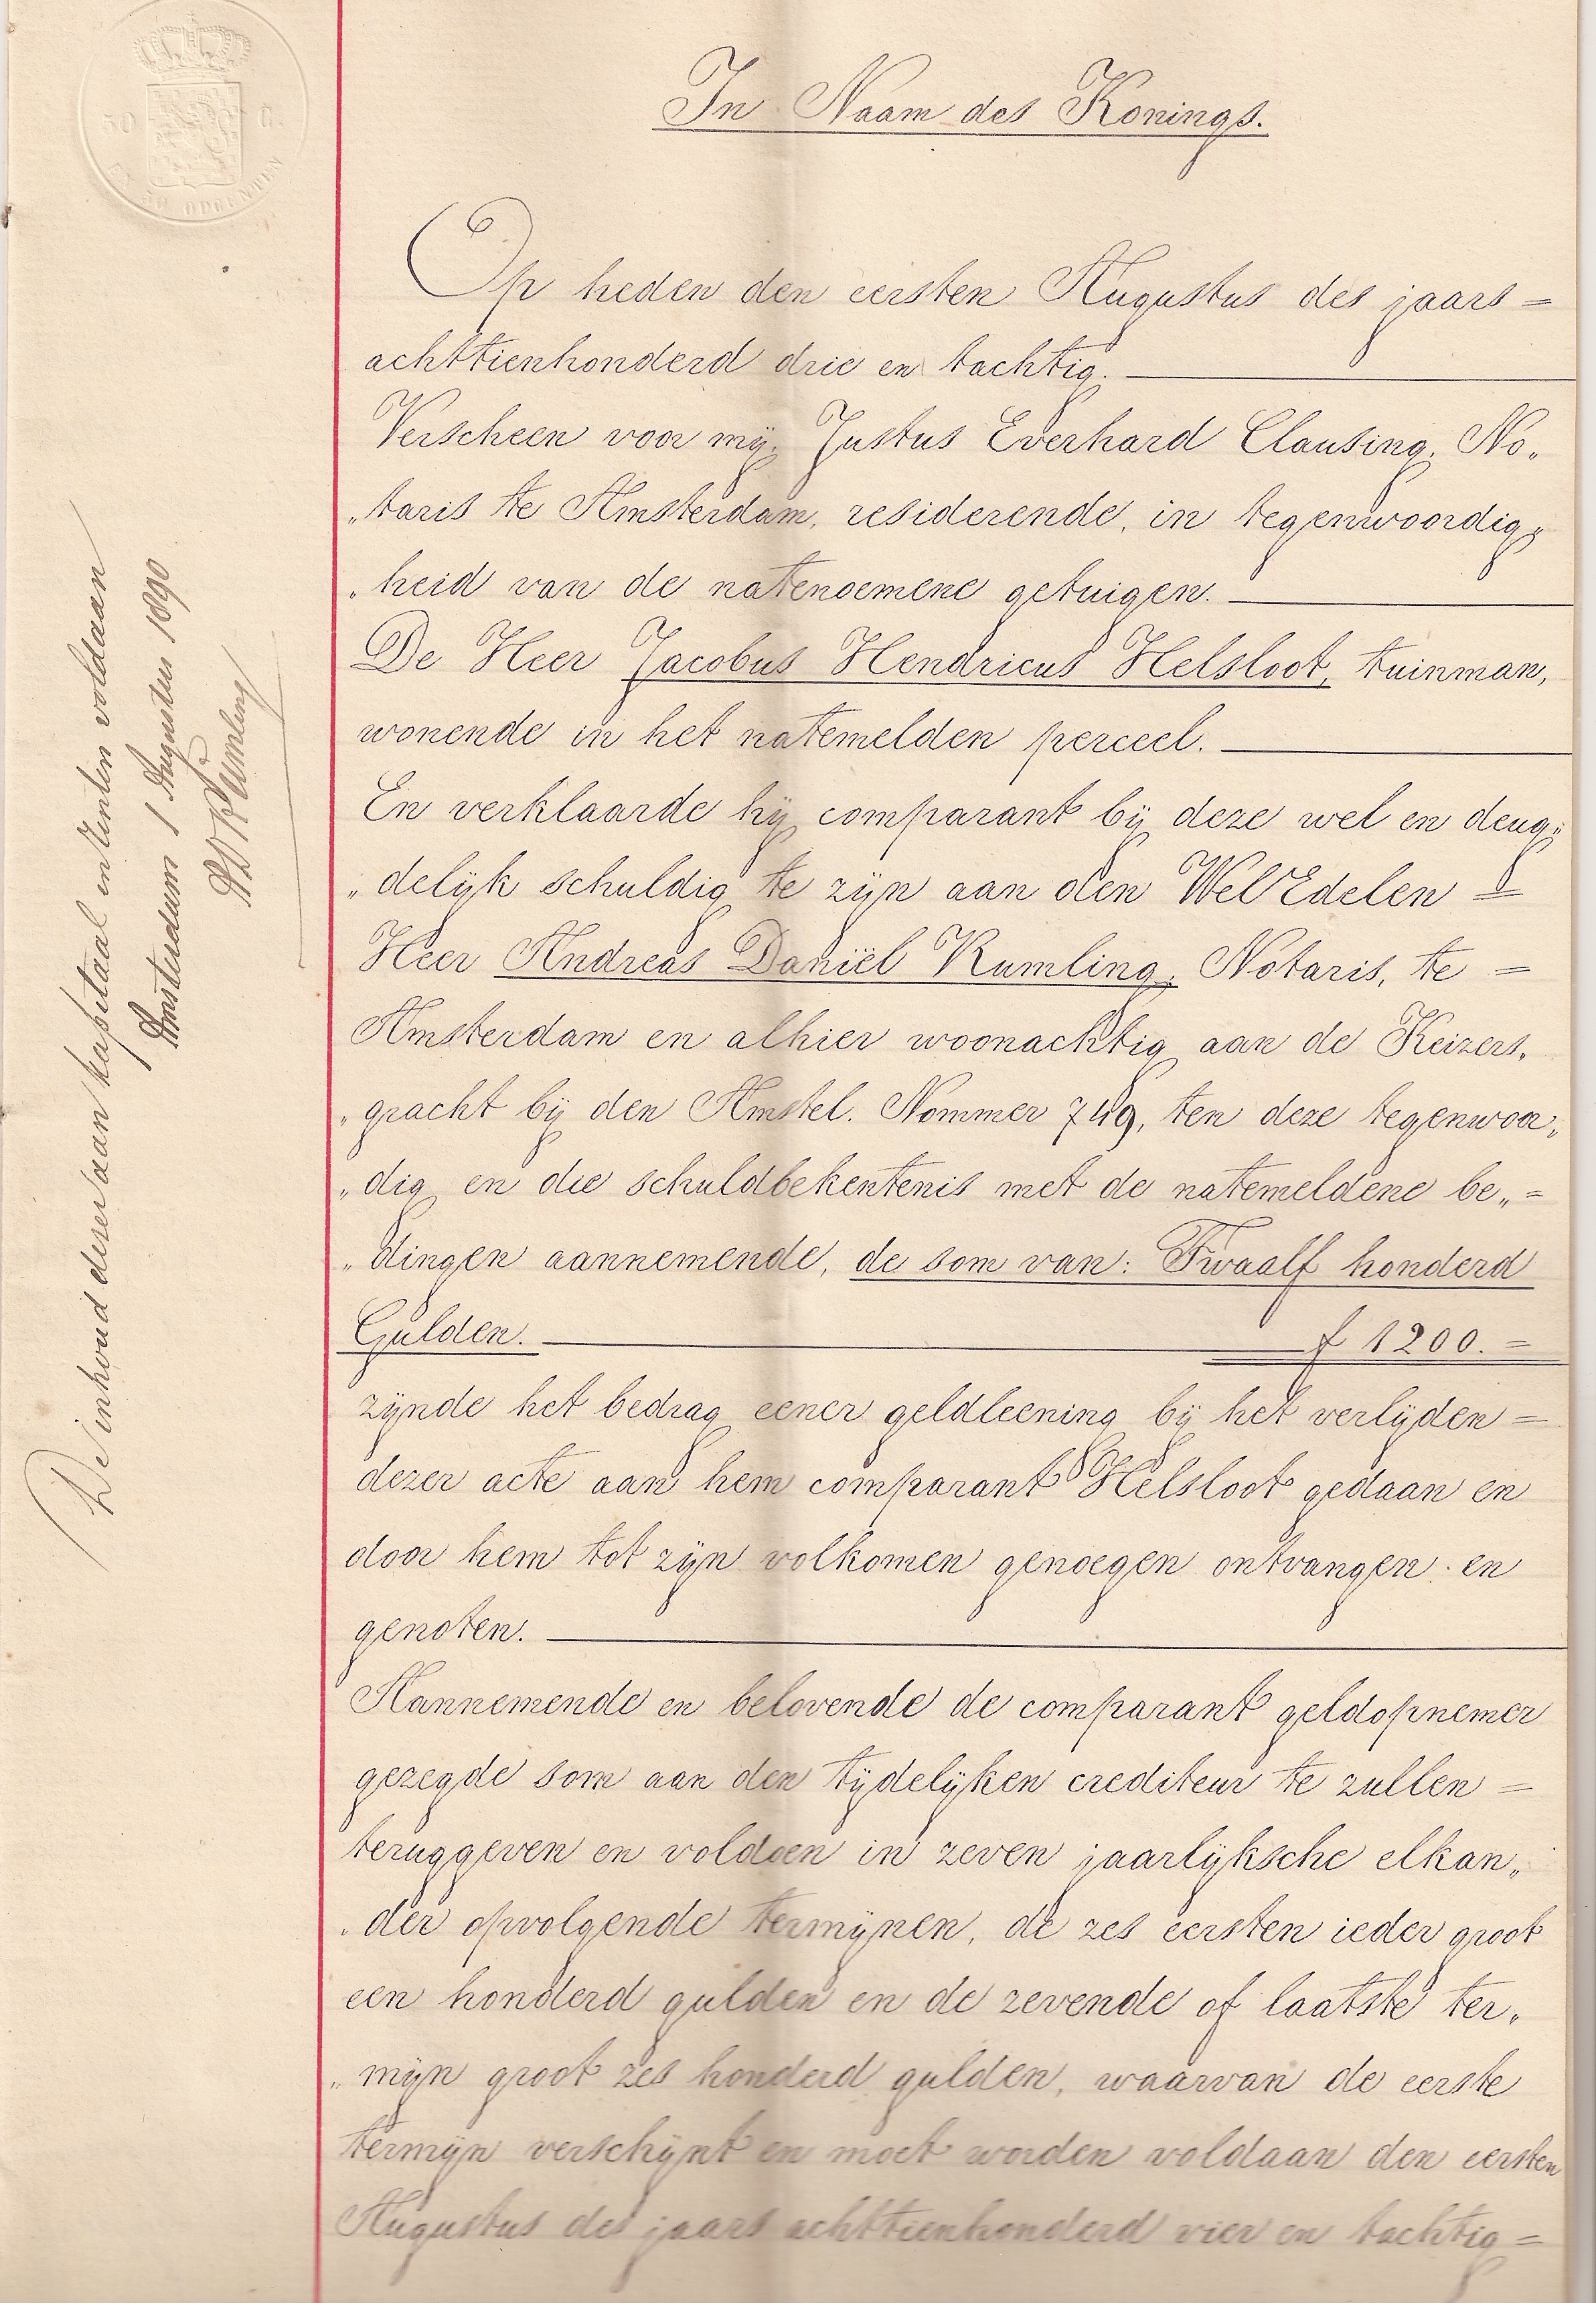 In Naam des Konings.
Op heden den eersten Augustus des jaars =
achttienhonderd drie en tachtig.
Verscheen voor mij, Justus Everhard Clausing, No„
„taris te Amsterdam, residerende, in tegenwoordig„
„heid van de natenoemene getuigen.
De Heer Jacobus Hendricus Helsloot, tuinman,
wonende in het natemelden perceel.
En verklaarde hij comparant bij deze wel en deug„
„delijk schuldig te zijn aan den WelEdelen =
Heer Andreas Daniël Kumling, Notaris, te =
Amsterdam en alhier woonachtig aan de Keizers„
„gracht bij den Amstel. Nommer 749, ten deze tegenwoor„
„dig en die schuldbekentenis met de natemeldene be„ =
„dingen aannemende, de som van: Twaalf honderd
Gulden. f 1200. =
zijnde het bedrag eener geldleening bij het verlijden =
dezer acte aan hem comparant Helsloot gedaan en
door hem tot zijn volkomen genoegen ontvangen en
genoten.
Aannemende en belovende de comparant geldopnemer
gezegde som aan den tijdelijken crediteur te zullen =
teruggeven en voldoen in zeven jaarlijksche elkan„
„der opvolgende termijnen, de zes eersten ieder groot
een honderd gulden en de zevende of laatste ter„
„mijn groot zes honderd gulden, waarvan de eerste
termijn verschijnt en moet worden voldaan den eersten
Augustus des jaars achttienhonderd vier en tachtig =
De inhoud dezer aan kapitaal en renten voldaan
Amsterdam 1 Augustus 1890
AD Kumling
50 C.
EN 30 OPCENTEN